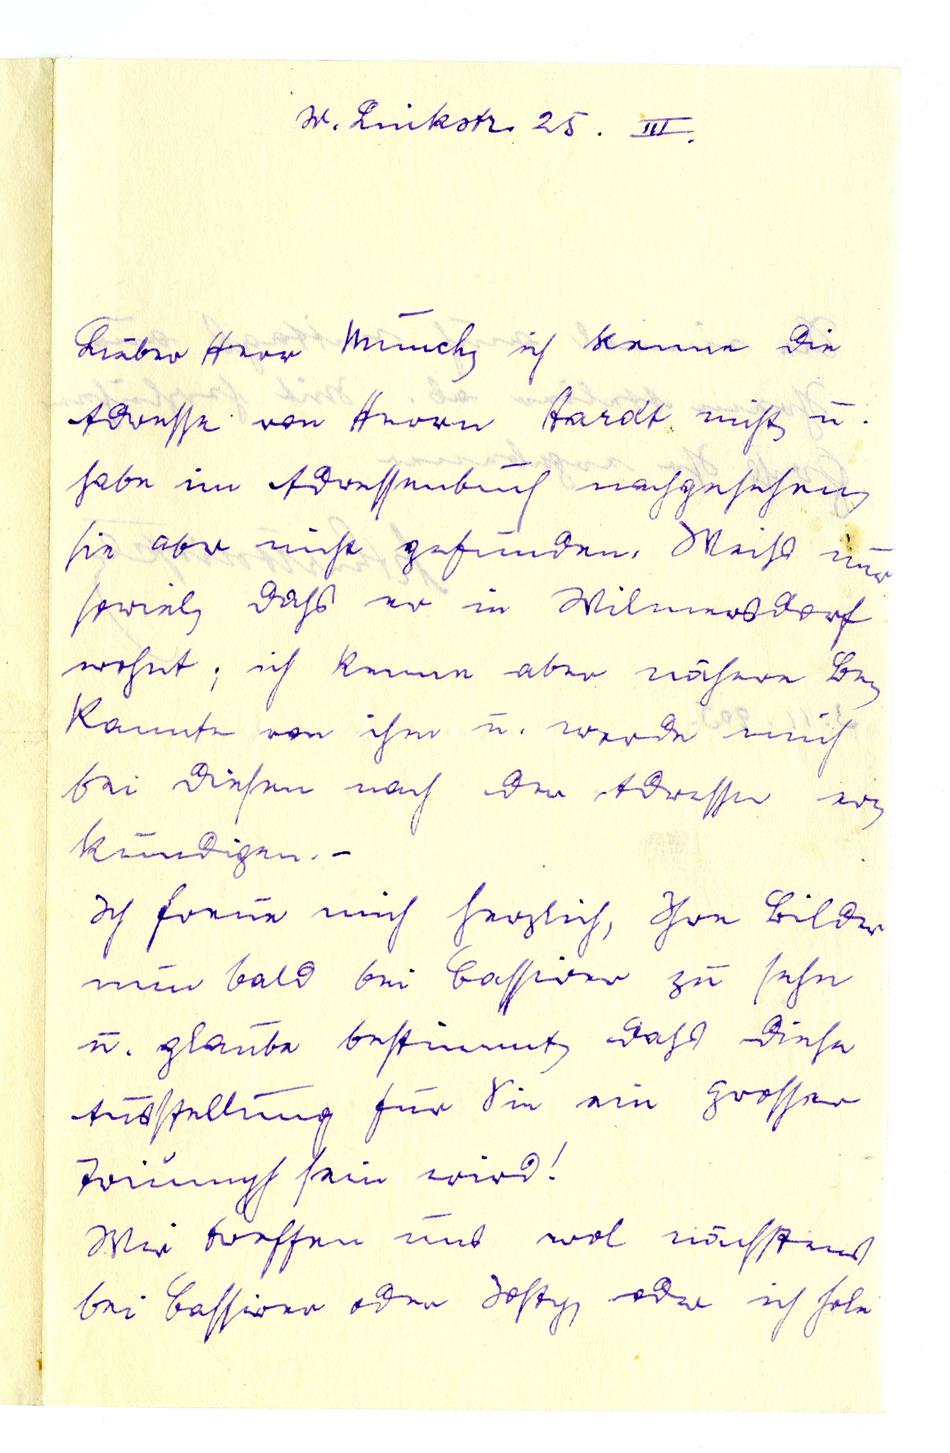 W. Linkstr. 25. III.
Lieber Herr Munch, ich kenne die
Adresse von Herrn Hardt nicht, u.
habe im Adressenbuch nachgesehen,
sie aber nicht gefunden. Weiss nur
soviel, dass er in Wilmersdorf
wohnt; ich kenne aber nähere Be-
kannte von ihm u. werde mich
bei diesen nach der Adresse er-
kundigen. –
Ich freue mich herzlich, Ihre Bilder
nun bald bei Cassirer zu sehn
u. glaube bestimmt, dass diese
Ausstellung für Sie ein grosser
Triumph sein wird!
Wir treffen uns wol nächstens
bei Cassirer oder Josty, oder ich hole